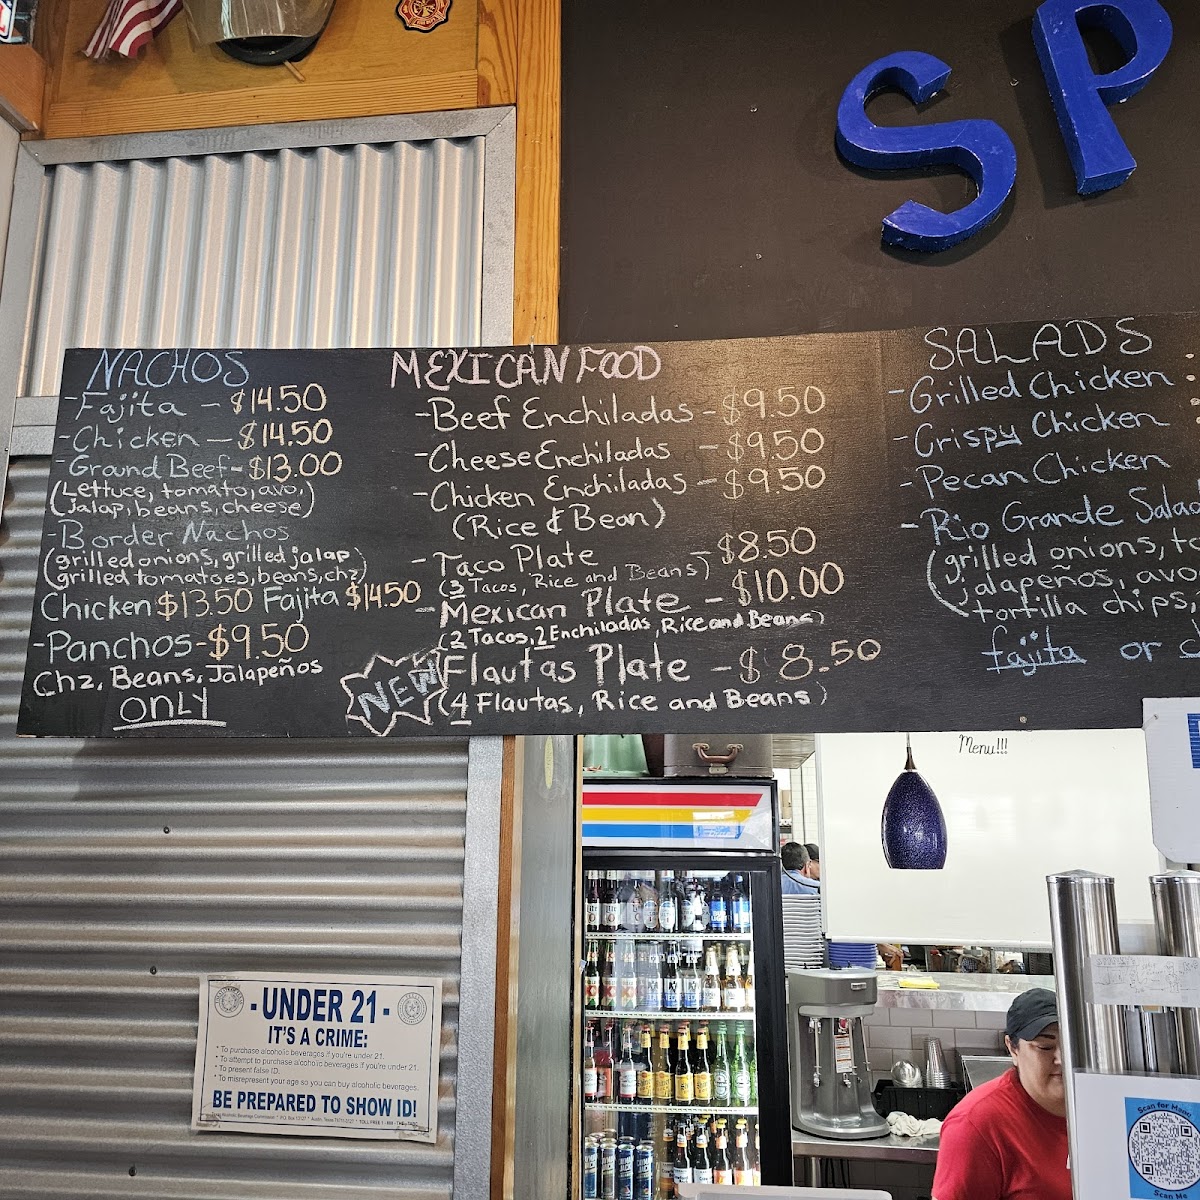 SP
NACHOS
-Fajita - $14.50
-Chicken - $14.50
-Ground Beef - $13.00
(Lettuce, tomato, avo,
jalap, beans, cheese)
-Border Nachos
(grilled onions, grilled jalap
grilled tomatoes, beans, chz)
Chicken $13.50 Fajita $14.50
-Panchos - $9.50
Chz, Beans, Jalapeños
ONLY
MEXICAN FOOD
-Beef Enchiladas - $9.50
-Cheese Enchiladas - $9.50
-Chicken Enchiladas - $9.50
(Rice & Bean)
-Taco Plate - $8.50
(3 Tacos, Rice and Beans)
-Mexican Plate - $10.00
(2 Tacos, 2 Enchiladas, Rice and Beans)
NEW Flautas Plate - $8.50
(4 Flautas, Rice and Beans)
SALADS
-Grilled Chicken
-Crispy Chicken
-Pecan Chicken
-Rio Grande Salad
(grilled onions, to
jalapeños, avo
tortilla chips,
fajita or
Menu!!!
-UNDER 21-
IT'S A CRIME:
* To purchase alcoholic beverages if you're under 21.
* To attempt to purchase alcoholic beverages if you're under 21.
* To present false ID.
* To misrepresent your age so you can buy alcoholic beverages.
BE PREPARED TO SHOW ID!
Scan for Menu
Scan Me